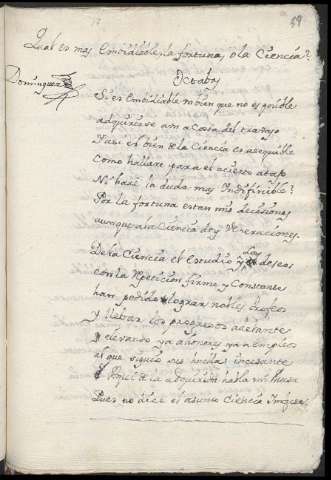 59
Qual es mas Embidiable la fortuna, o la Ciencia?
Octabas
Dominguez
Si es Embidiable un bien que no es posible
adquirirse aun a Costa del trabajo
Y assi el bien de la Ciencia es asequible
Como hallare para el acierto atajo
la duda mas Indifinible?
Por la fortuna estan mis decisiones
aunque a la Ciencia doy Veneraciones.
De la Ciencia el Estudio y los deseos
con la Repeticion firme y Constante
han podido lograr nobles trofeos
y llebar los progresos adelante
y elevando ya a honores ya a empleos
al que siguio sus huellas incesante
de la adquirida habla mi Musa
Pues no dize el asunto Ciencia